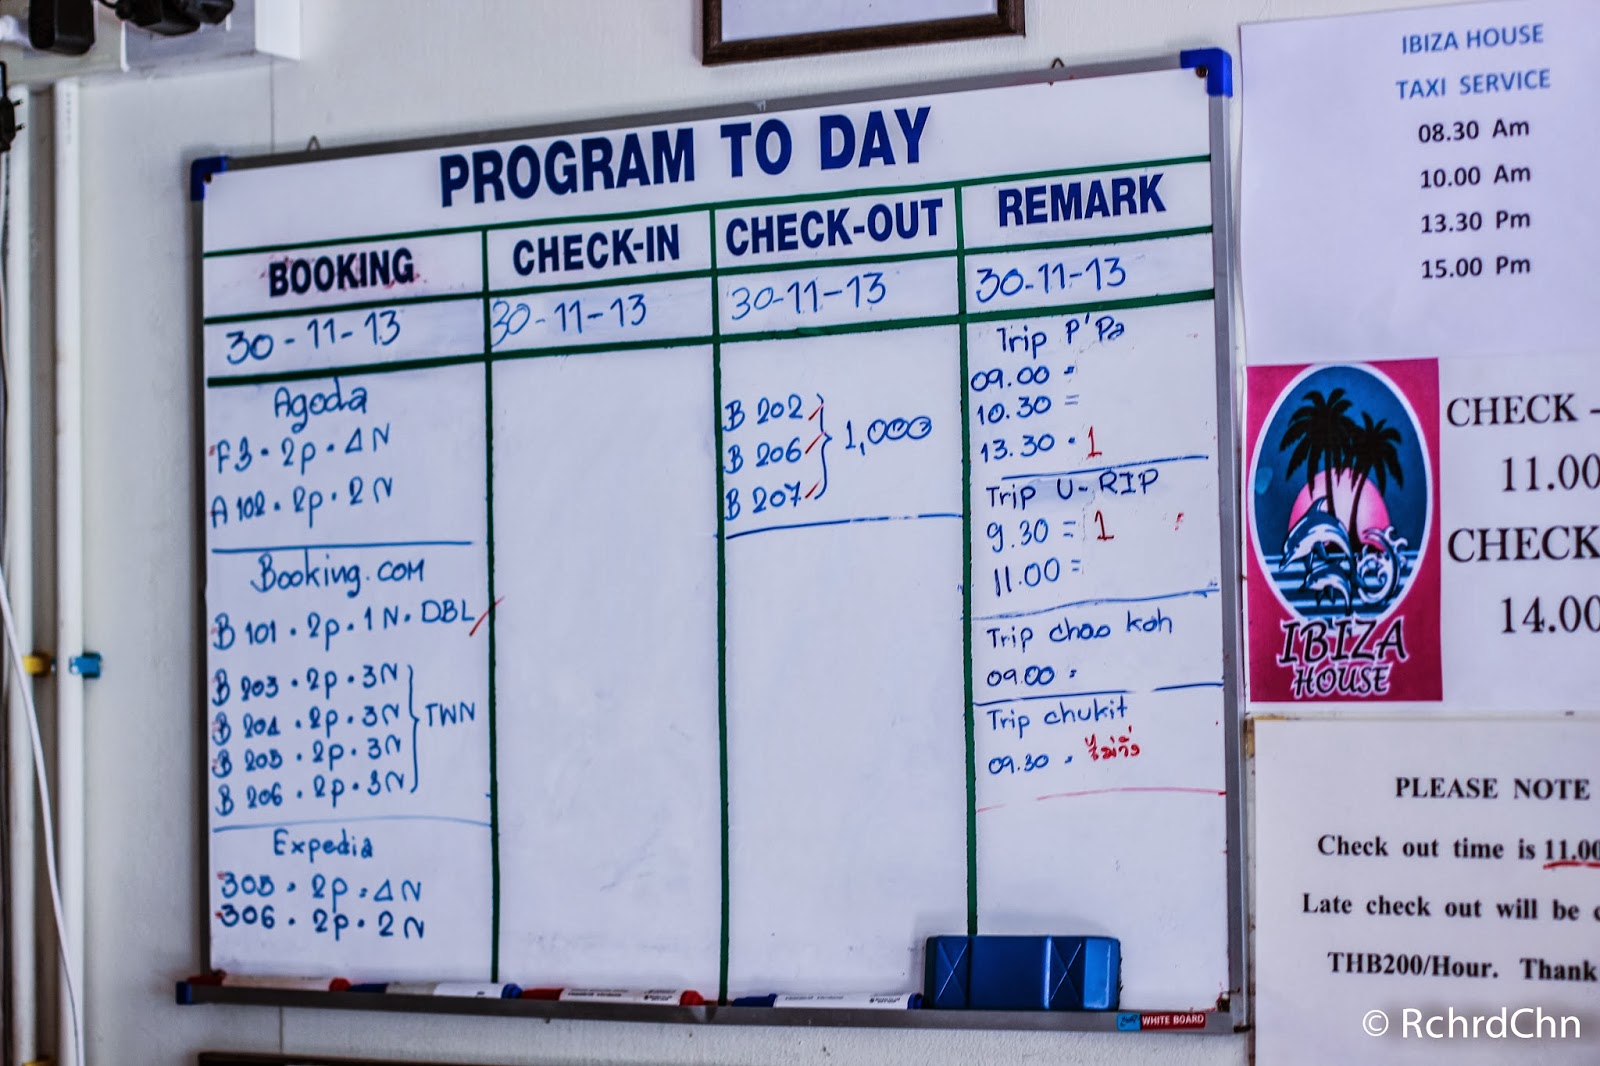 PROGRAM TO DAY
BOOKING
30-11-13
Agoda
F3 · 2p · 4N
A 102 · 2p · 2N
Booking.com
B 101 · 2p · 1N · DBL
B 203 · 2p · 3N
B 204 · 2p · 3N
B 205 · 2p · 3N
B 206 · 2p · 3N
TWN
Expedia
305 · 2p · 4N
306 · 2p · 2N
CHECK-IN
30-11-13
CHECK-OUT
30-11-13
B 202
B 206
B 207
1,000
REMARK
30-11-13
Trip P'Pa
09.00 =
10.30 =
13.30 · 1
Trip U-RIP
9.30 = 1
11.00 =
Trip chao koh
09.00 =
Trip chukit
09.30 · ไม่วิ่ง
WHITE BOARD
IBIZA HOUSE
TAXI SERVICE
08.30 Am
10.00 Am
13.30 Pm
15.00 Pm
IBIZA
HOUSE
CHECK -
11.00
CHECK
14.00
PLEASE NOTE
Check out time is 11.00
Late check out will be
THB200/Hour. Thank
© RchrdChn